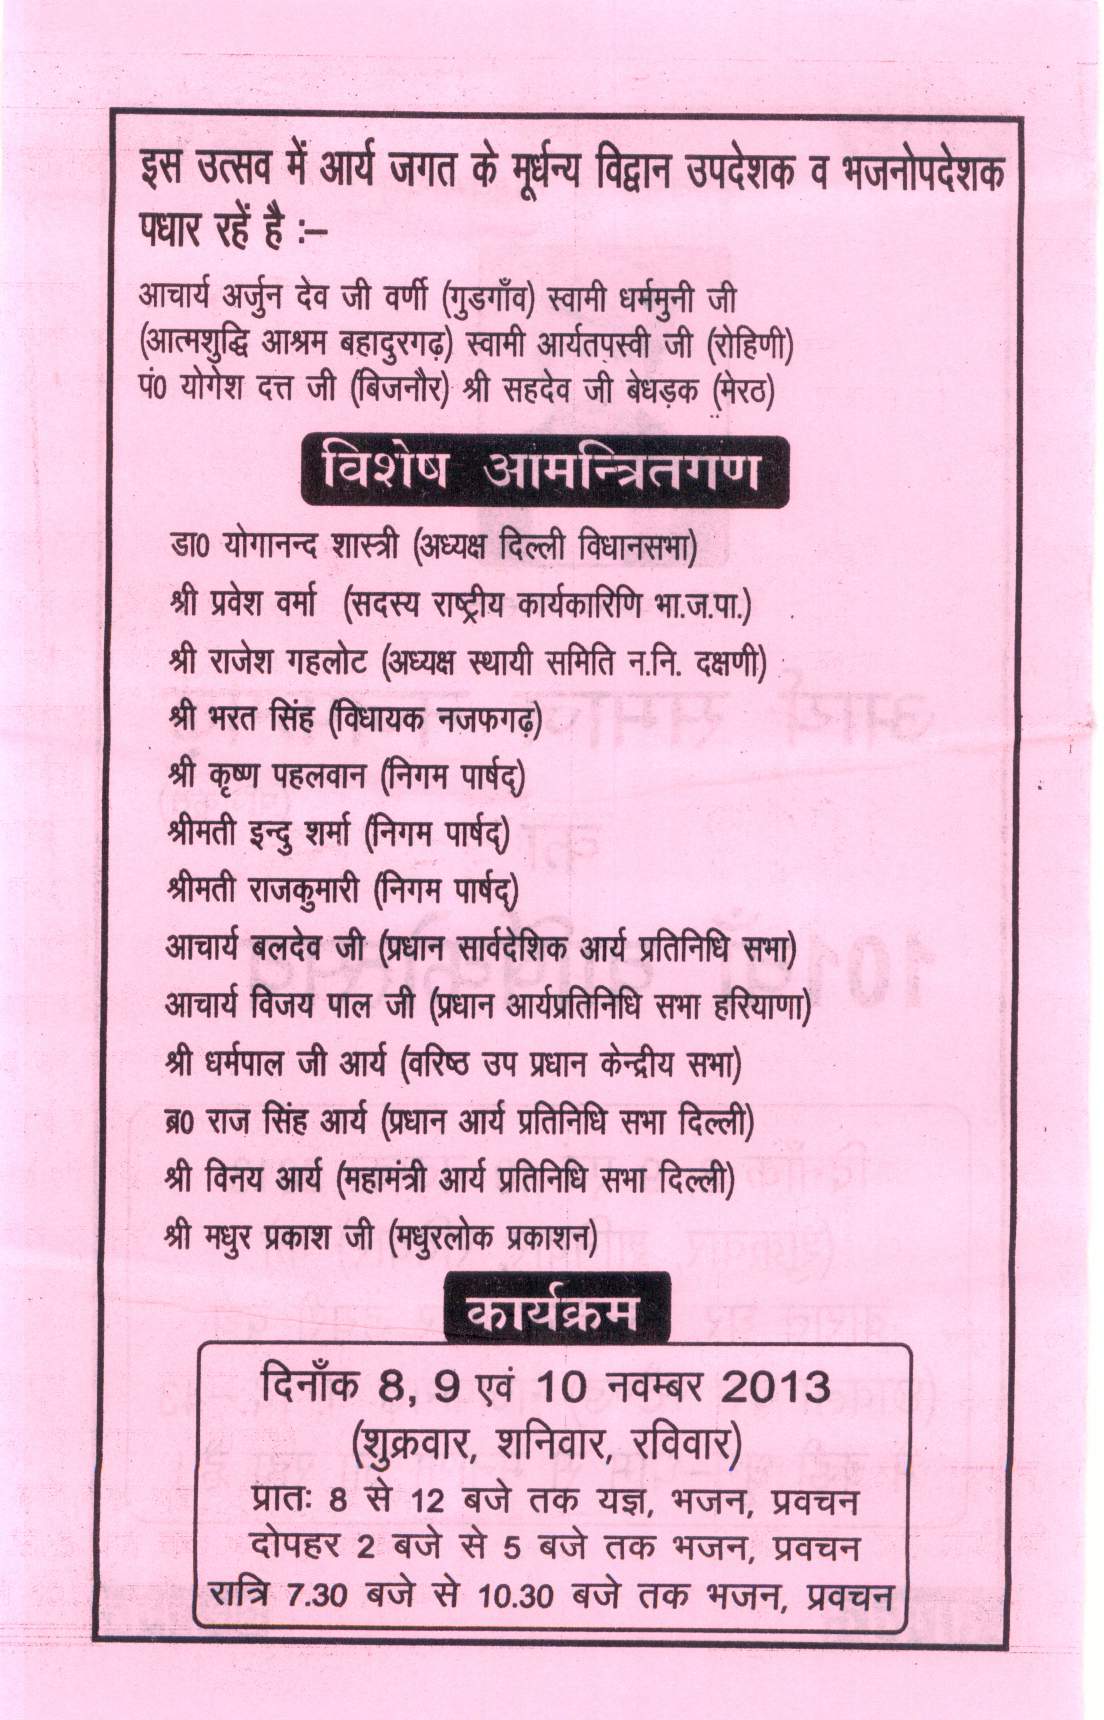 इस उत्सव में आर्य जगत के मूर्धन्य विद्वान उपदेशक व भजनोपदेशक
पधार रहें है :–
आचार्य अर्जुन देव जी वर्णी (गुडगाँव) स्वामी धर्ममुनी जी
(आत्मशुद्धि आश्रम बहादुरगढ़) स्वामी आर्यतपस्वी जी (रोहिणी)
पं0 योगेश दत्त जी (बिजनौर) श्री सहदेव जी बेधड़क (मेरठ)
विशेष आमन्त्रितगण
डा0 योगानन्द शास्त्री (अध्यक्ष दिल्ली विधानसभा)
श्री प्रवेश वर्मा (सदस्य राष्ट्रीय कार्यकारिणि भा.ज.पा.)
श्री राजेश गहलोट (अध्यक्ष स्थायी समिति न.नि. दक्षणी)
श्री भरत सिंह (विधायक नजफगढ़)
श्री कृष्ण पहलवान (निगम पार्षद्)
श्रीमती इन्दु शर्मा (निगम पार्षद्)
श्रीमती राजकुमारी (निगम पार्षद्)
आचार्य बलदेव जी (प्रधान सार्वदेशिक आर्य प्रतिनिधि सभा)
आचार्य विजय पाल जी (प्रधान आर्यप्रतिनिधि सभा हरियाणा)
श्री धर्मपाल जी आर्य (वरिष्ठ उप प्रधान केन्द्रीय सभा)
ब्र0 राज सिंह आर्य (प्रधान आर्य प्रतिनिधि सभा दिल्ली)
श्री विनय आर्य (महामंत्री आर्य प्रतिनिधि सभा दिल्ली)
श्री मधुर प्रकाश जी (मधुरलोक प्रकाशन)
कार्यक्रम
दिनाँक 8, 9 एवं 10 नवम्बर 2013
(शुक्रवार, शनिवार, रविवार)
प्रातः 8 से 12 बजे तक यज्ञ, भजन, प्रवचन
दोपहर 2 बजे से 5 बजे तक भजन, प्रवचन
रात्रि 7.30 बजे से 10.30 बजे तक भजन, प्रवचन